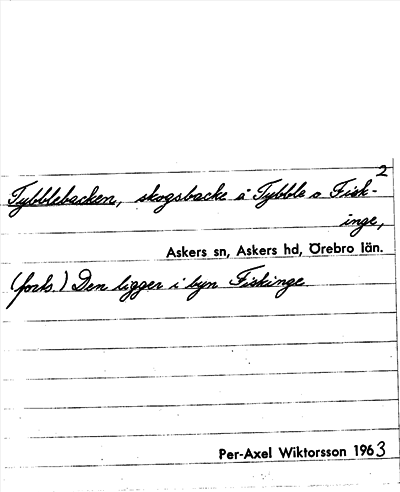 2
Tybblebacken, skogsbacke å Tybble o Fisk-
inge,
Askers sn, Askers hd, Örebro län.
(forts.) Den ligger i byn Fiskinge.
Per-Axel Wiktorsson 1963